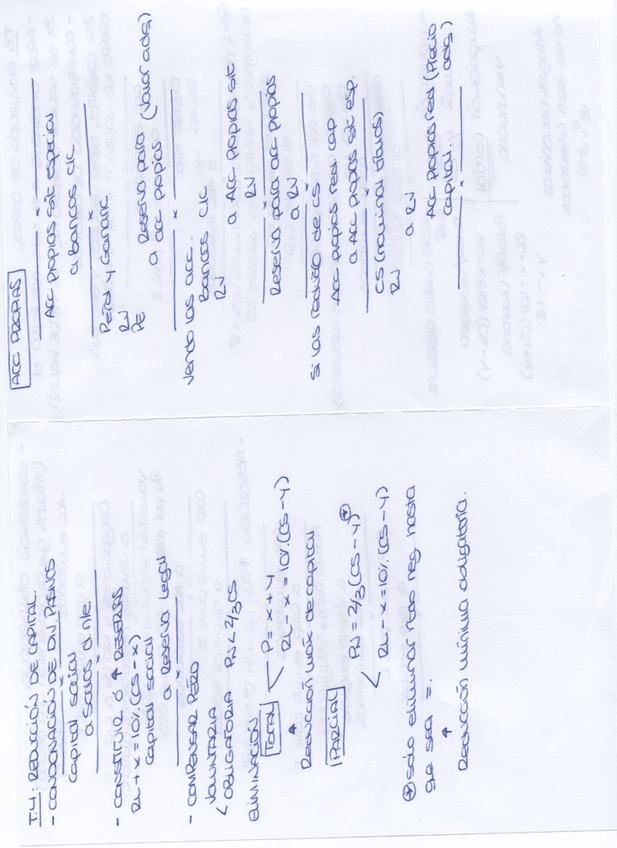 T.4: REDUCCIÓN DE CAPITAL.
- CONDONACIÓN DE DIV. PASIVOS
x
Capital social
a socios d. n/e
- CONSTITUIR ó ↑ RESERVAS
RL + x = 10% (CS - x)
Capital social
a Reserva legal
x
- COMPENSAR PERD
< VOLUNTARIA
OBLIGATORIA PN < 2/3 CS
ELIMINACIÓN
TOTAL < P = x + y
RL - x = 10% (CS - y)
↑
Reducción máx de capital
PARCIAL
< PN = 2/3 (CS - y) ⊕
RL - x = 10% (CS - y)
⊕ sólo eliminar rtdo neg. hasta
que sea =.
↑
Reducción mínima obligatoria.
ACC PROPIAS
x
Acc propias sit especial
a Bancos c/c
x
Perd y Gananc
RV
PE
a Reserva para
a acc propias (valor adq)
x
Vendo las acc.
Bancos c/c
RV
a Acc propias sit
RV
x
Reserva para acc propias
a RV
x
Si las reduzco de CS
Acc propias red cap
a Acc propias sit esp.
x
CS (nominal títulos)
RV
a RV
Acc propias red (Precio
capital. adq)
x